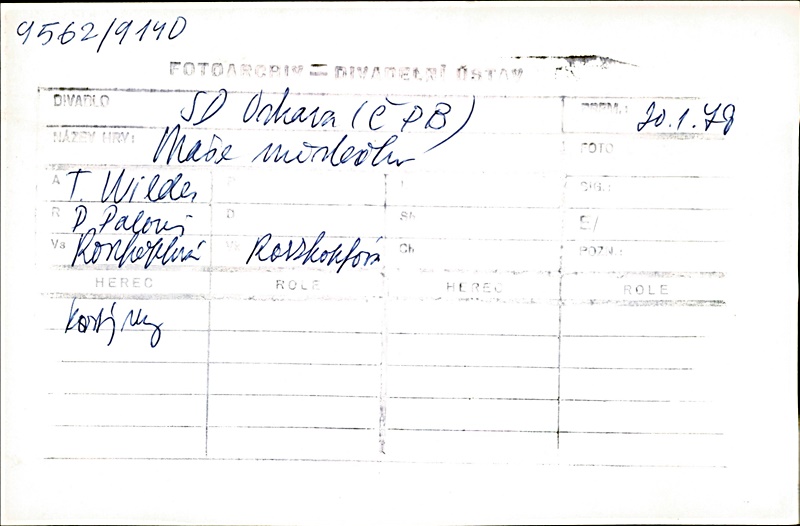 9562/9140
FOTOARCHIV — DIVADELNÍ ÚSTAV
DIVADLO SD Ostrava (ČPB) PREM.: 20.1.78
NÁZEV HRY: Naše městečko FOTO
A T. Wilder P T SIG.:
R P. Palouš D SN E/
Vs Roszkopfová Roszkopfová Ch POZN.:
HEREC ROLE HEREC ROLE
kostýmy